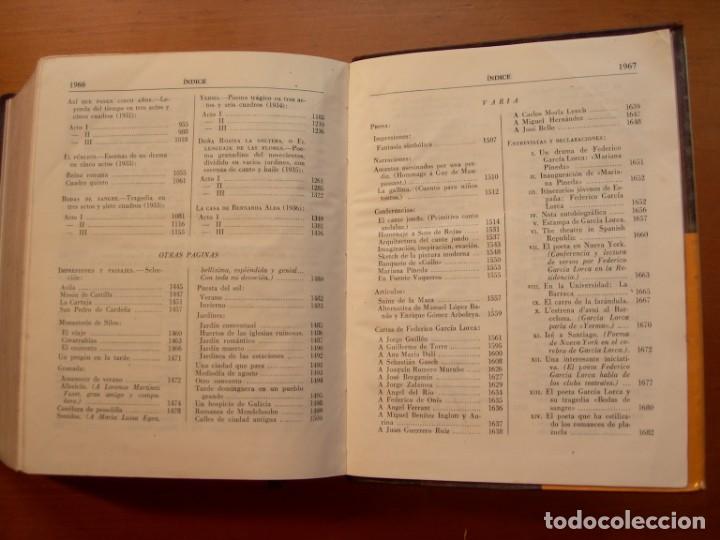 1966
ÍNDICE
ASÍ QUE PASEN CINCO AÑOS.—Le-
yenda del tiempo en tres actos y
cinco cuadros (1931):
Acto I 955
— II 988
— III 1018
EL PÚBLICO.—Escenas de un drama
en cinco actos (1933):
Reina romana 1055
Cuadro quinto 1061
BODAS DE SANGRE.—Tragedia en
tres actos y siete cuadros (1933):
Acto I 1081
— II 1116
— III 1155
YERMA.—Poema trágico en tres actos
y seis cuadros (1934):
Acto I 1183
— II 1206
— III 1236
DOÑA ROSITA LA SOLTERA, O EL
LENGUAJE DE LAS FLORES.—Poe-
ma granadino del novecientos,
dividido en varios jardines, con
escenas de canto y baile (1935):
Acto I 1261
— II 1285
— III 1322
LA CASA DE BERNARDA ALBA (1936):
Acto I 1349
— II 1382
— III
OTRAS PAGINAS
IMPRESIONES Y PAISAJES.—Selec-
ción:
Avila 1445
Mesón de Castilla 1447
La Cartuja 1451
San Pedro de Cardeña 1457
Monasterio de Silos:
El viaje 1460
Covarrubias 1463
El convento 1466
Un pregón en la tarde 1471
Granada:
Amanecer de verano 1472
Albaicín. (A Lorenzo Martínez
Fuset, gran amigo y compa-
ñero.) 1474
Canéfora de pesadilla 1478
Sonidos. (A María Luisa Egea,
bellísima, espléndida y genial...
Con toda mi devoción.) 1480
Puesta del sol:
Verano 1482
Invierno 1483
Jardines:
Jardín conventual 1485
Huertos de las iglesias ruinosas. 1486
Jardín romántico 1487
Jardín muerto 1490
Jardines de las estaciones 1492
Una ciudad que pasa 1493
Mediodía de agosto 1493
Otro convento 1495
Tarde dominguera en un pueblo
grande 1496
Un hospicio de Galicia 1498
Romanza de Mendelssohn 1498
Calles de ciudad antigua 1500
ÍNDICE
1967
VARIA
PROSA:
Impresiones:
Fantasía simbólica 1507
Narraciones:
Amantes asesinados por una per-
diz. (Hommage à Guy de Mau-
passant.) 1510
La gallina. (Cuento para niños
tontos.) 1512
Conferencias:
El cante jondo. (Primitivo canto
andaluz.) 1514
Homenaje a Soto de Rojas 1531
Arquitectura del cante jondo 1537
Imaginación, inspiración, evasión. 1543
Sketch de la pintura moderna 1550
Banquete de «Gallo» 1553
Mariana Pineda 1555
En Fuente Vaqueros 1555
Artículos:
Sainz de la Maza 1557
Alternativa de Manuel López Ba-
nús y Enrique Gómez Arboleya. 1559
Cartas de Federico García Lorca:
A Jorge Guillén 1561
A Guillermo de Torre 1594
A Ana María Dalí 1600
A Sebastián Gasch
A Joaquín Romero Murube
A José Bergamín
A Jorge Zalamea
A Angel del Río
A Federico de Onís
A Angel Ferrant
A Miguel Benítez Inglott y Au-
rina 1637
A Juan Guerrero Ruiz 1638
A Carlos Morla Lynch 1639
A Miguel Hernández 1647
A José Bello 1648
ENTREVISTAS Y DECLARACIONES:
I. Un drama de Federico
García Lorca: «Mariana
Pineda» 1651
II. Inauguración de «Maria-
na Pineda» 1651
III. Itinerarios jóvenes de Es-
paña: Federico García
Lorca 1652
IV. Nota autobiográfica 1656
V. Estampa de García Lorca. 1657
VI. The theatre in Spanish
Republic 1660
VII. El poeta en Nueva York.
(Conferencia y lectura
de versos por Federico
García Lorca en la Re-
sidencia.) 1663
VIII. En la Universidad: La
Barraca 1665
IX. El carro de la farándula. 1667
X. L'estrena d'avui al Bar-
celona. (García Lorca
parla de «Yerma».) 1670
XI. Iré a Santiago. (Poema
de Nueva York en el ce-
rebro de García Lorca.) 1672
XII. Una interesante inicia-
tiva. (El poeta Federico
García Lorca habla de
los clubs teatrales.) 1677
XIII. El poeta García Lorca y
su tragedia «Bodas de
sangre» 1680
XIV. El poeta que ha estiliza-
do los romances de pla-
zuela 1682
todocoleccion
todocoleccion.net